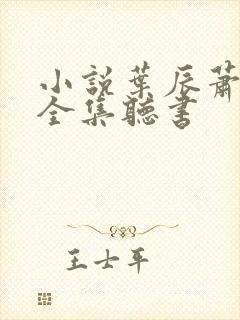 小説葉辰蕭
全集聽書
王士平